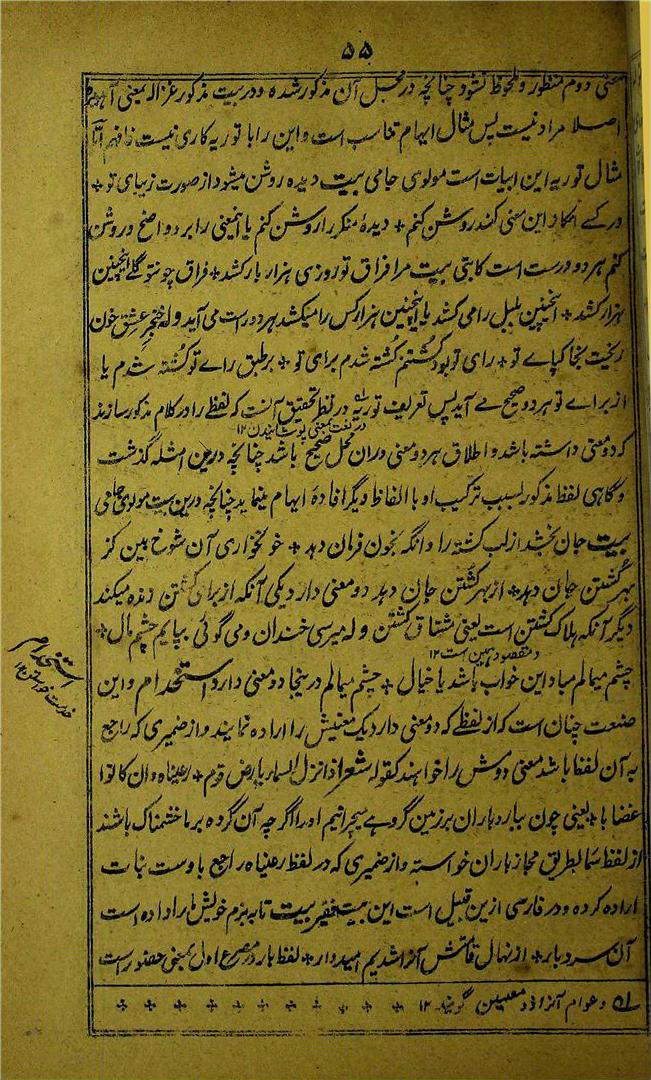 ۵۵
معنی دوم منظور و ملحوظ نشود چنانچه در محل آن مذکور شده و در بیت مذکور غزاله بمعنی آهو بره
اصلا مراد نیست پس مثال ایهام تناسب است و این را با توریه کاری نیست فافهم اما
مثال توریه این ابیات است مولوی جامی بیت دیده روشن میشود از صورت زیبای تو +
ور کسے انکار این سخی کند روشن کنم + دیدهٔ منکر را روشن کنم یا اینمعنی را بر و واضح و روشن
کنم هر دو درست است کاتبی بیت مرا فراق تو روزی هزار بار کشد + فراق چون تو گلے اینچنین
هزار کشد + اینچنین بلبل را می کشد یا اینچنین هزار کس را میکشد هر دو راست می آید وله خنجر عشق خون
ریخت بخاکپاے تو + رای تو بود کشتنم کشته شدم برای تو + بر طبق راے تو کُشته شدم یا
از براے تو هر دو صحیح مے آید پس تعریف توریه در نظر تحقیق آنست که لفظے را در کلام مذکور سازند
در لغت بمعنی پوشانیدن ۱۲
که دو معنی داشته باشد و اطلاق هر دو معنی دران محل صحیح باشد چنانچه درین امثله گذشت
و گاهی لفظ مذکور بسبب ترکیب او با الفاظ دیگر افادهٔ ایهام مینماید چنانچه درین بیت مولوی جامی
بیت جان بخشد از لب کشته را وانگه بخون فرمان دهد + خونخواری آن شوخ بین کز
بهر کُشتن جان دهد + از بهر کُشتن جان دهد دو معنی دارد یکی آنکه از برای کشتن زنده میکند
دیگر آنکه هلاک کشتن است یعنی مشتاق کشتن وله میرسی خندان و می گوئی بپایم چشم مال +
و مقصود همین است ۱۲
چشم میمالم مباد این خواب باشد یا خیال + چشم میمالم درینجا دو معنی دارد استخدام و این
استخدام
خدمت خواستن ۱۲
صنعت چنان است که از لفظے که دو معنی دارد یک معنیش را اراده نمایند و از ضمیری که راجع
به آن لفظ باشد معنی دومش را خواهند کقوله شعر اذا نزل السماء بارض قوم + رعیناه وان کانوا
غضابا + یعنی چون ببارد باران بر زمین گروهے میچرانیم او را اگر چه آن گروه بر ما خشمناک باشند
از لفظ سما بطریق مجاز باران خواسته و از ضمیری که در لفظ رعیناه راجع باوست نبات
اراده کرده و در فارسی ازین قبیل است این بیت فقیر بیت تا به بزم خویش ما را داده است
آن سرو بار + از نهال قامتش آنرا شدیم امیدوار + لفظ بار در مصرع اول بمعنی حضور است
۱۵ و عوام آنرا ذو معنیین گویند ۱۲